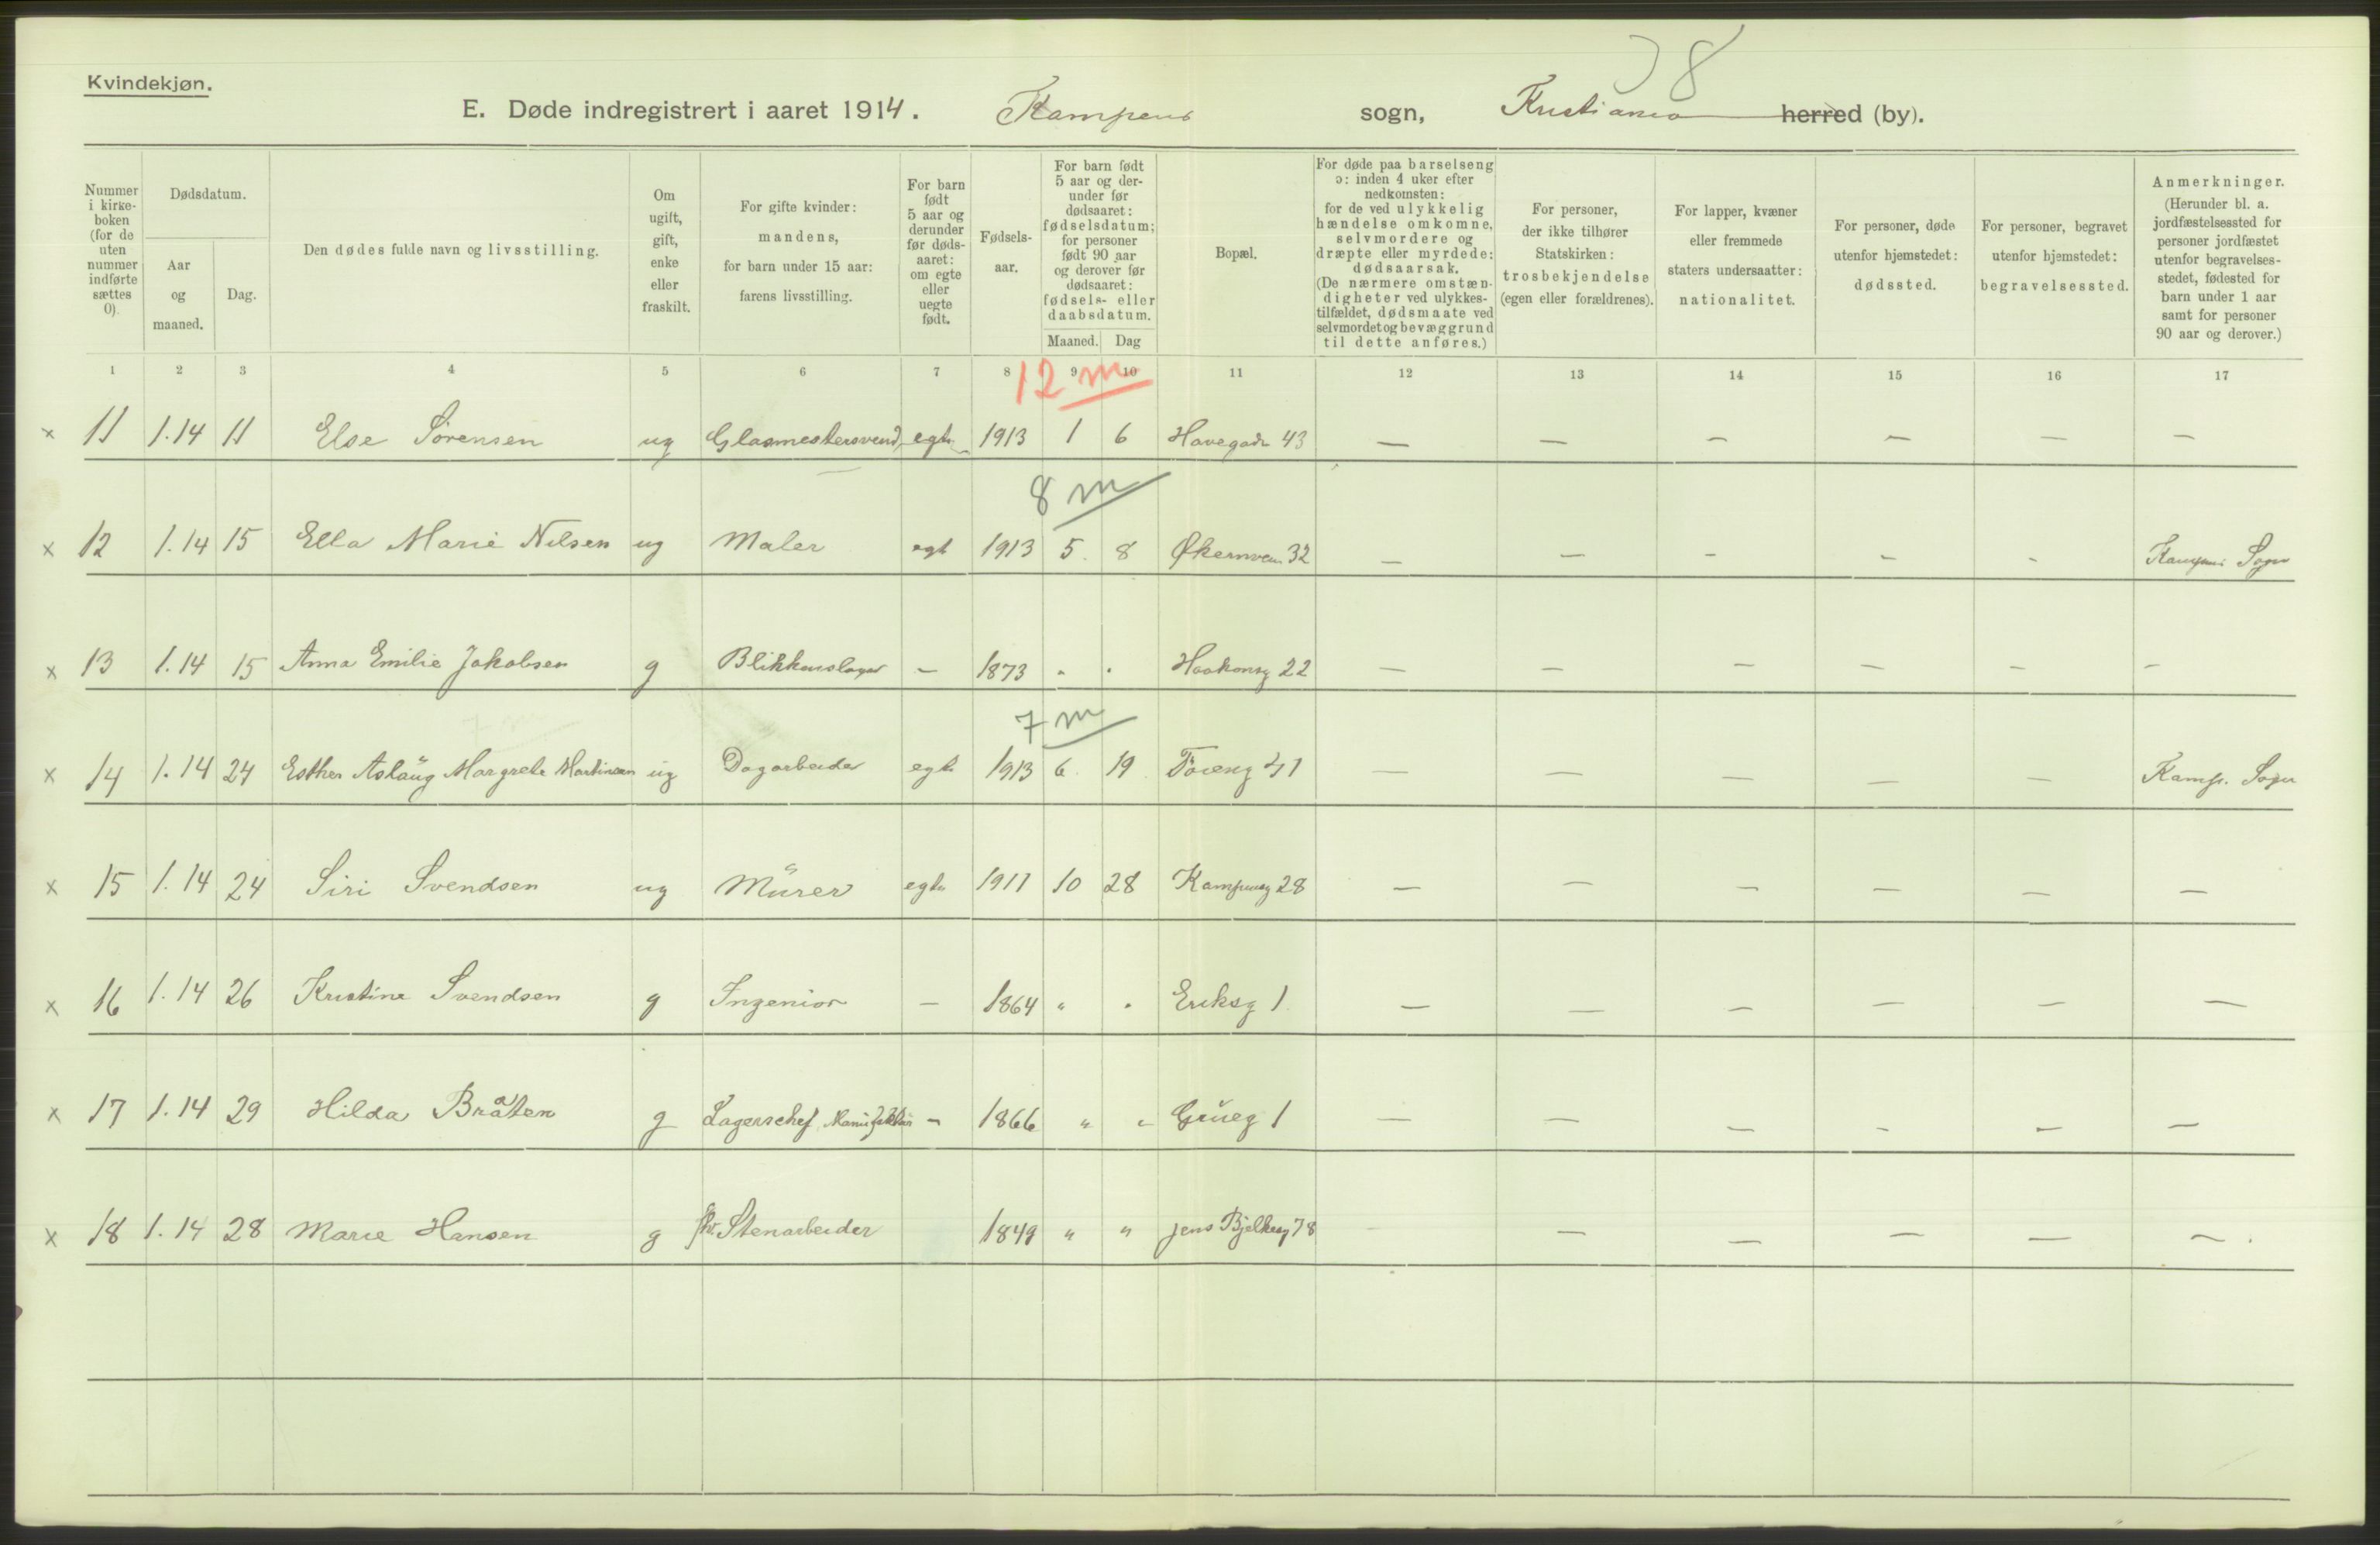 8
Kvindekjøn.
E. Døde indregistrert i aaret 1914. Kampens sogn, Kristiania herred (by).
Nummer i kirkeboken (for de uten nummer indførte sættes 0).
Dødsdatum.
Aar og maaned.
Dag.
Den dødes fulde navn og livsstilling.
Om ugift, gift, enke eller fraskilt.
For gifte kvinder: mandens, for barn under 15 aar: farens livsstilling.
For barn født 5 aar og derunder før dødsaaret: om egte eller uegte født.
Fødselsaar.
For barn født 5 aar og derunder før dødsaaret: fødselsdatum; for personer født 90 aar og derover før dødsaaret: fødsels- eller daabsdatum.
Maaned. Dag
Bopæl.
For døde paa barselseng ɔ: inden 4 uker efter nedkomsten: for de ved ulykkelig hændelse omkomne, selvmordere og dræpte eller myrdede: dødsaarsak. (De nærmere omstændigheter ved ulykkestilfældet, dødsmaate ved selvmordet og bevæggrund til dette anføres.)
For personer, der ikke tilhører Statskirken: trosbekjendelse (egen eller forældrenes).
For lapper, kvæner eller fremmede staters undersaatter: nationalitet.
For personer, døde utenfor hjemstedet: dødssted.
For personer, begravet utenfor hjemstedet: begravelsessted.
Anmerkninger. (Herunder bl. a. jordfæstelsessted for personer jordfæstet utenfor begravelsesstedet, fødested for barn under 1 aar samt for personer 90 aar og derover.)
1 2 3 4 5 6 7 8 9 10 11 12 13 14 15 16 17
12 m
× 11 1.14 11 Else Sørensen ug Glasmestersvend egte 1913 1 6 Havegade 43 — — — — — —
8 m
× 12 1.14 15 Ella Marie Nilsen ug Maler egt 1913 5. 8 Økernvein 32 — — — — — Kampens Sogn
× 13 1.14 15 Anna Emilie Jakobsen g Blikkenslager — 1873 " " Haakonsg 22 — — — — — —
7 m
× 14 1.14 24 Esther Aslaug Margrete Martinsen ug Dagarbeider egte 1913 6. 19 Tøieng 41 — — — — — Kamp. Sogn
× 15 1.14 24 Siri Svendsen ug Murer egte 1911 10 28 Kampensg 28 — — — — — —
× 16 1.14 26 Kristine Svendsen g Ingeniør — 1864 " " Eriksg 1 — — — — — —
× 17 1.14 29 Hilda Bråten g Lagerschef Manufaktur — 1866 " " Grueg 1 — — — — — —
× 18 1.14 28 Marie Hansen g fhv. Stenarbeider 1849 " " Jens Bjelkesg 78 — — — — — —